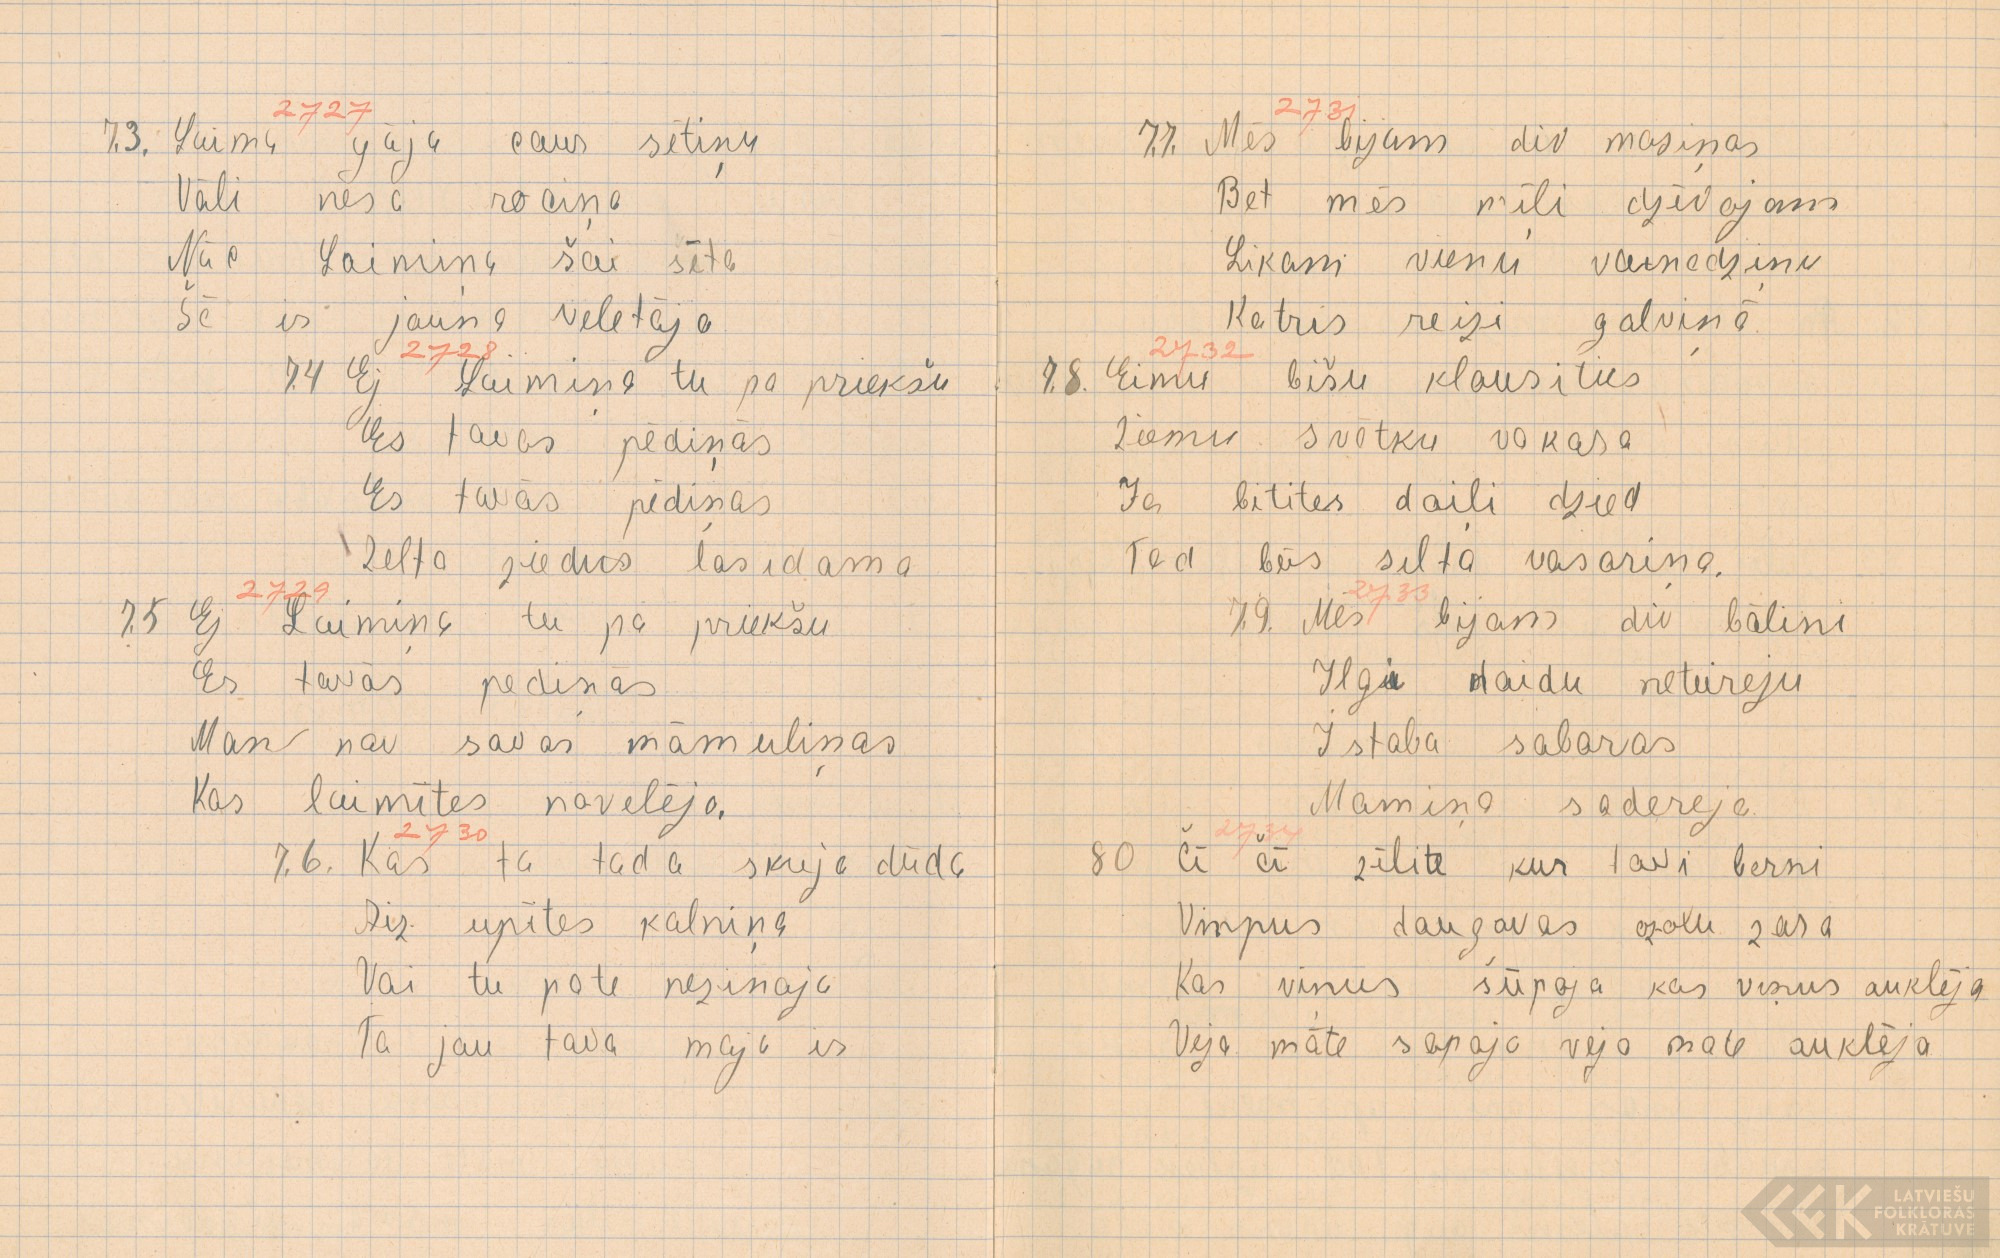 2727
73. Laima gāja caur sētiņu
Vāli nesa rociņa
Nāc Laimiņa šai sēta
Šē is jauna veletāja
2728
74 Ej Laimiņa tu pa priekšu
Es tavas pēdiņās
Es tavās pēdiņas
Zelta ziedus lasidama
2729
75 Ej Laimiņa tu pa priekšu
Es tavās pediņās
Man nav savas māmuliņas
Kas laimītes novelēja.
2730
76. Kas ta tada skuja dūda
Aiz upītes kalniņa
Vai tu pate nezinaja
Ta jau tava maja is
2731
77. Mēs bijam div masiņas
Bet mēs mīļi dzīvojam
Likam vienu vainadziņu
Katris reizi galviņā
2732
78. Eimu bišu klausitus
Ziemu svētku vakara
Ja bitites daiļi dzied
Tad būs silta vasariņa.
2733
79. Mēs bijam div bālini
Ilgu naidu netureju
Istaba sabaras
Mamiņa sadereja
2734
80 Čī čī zīlite kur tavi berni
Viņpus daugavas ozolu zara
Kas viņus šūpoja kas viņus auklēja
Vēja māte sapoja vēja mate auklēja
LATVIEŠU
FOLKLORAS
KRĀTUVE